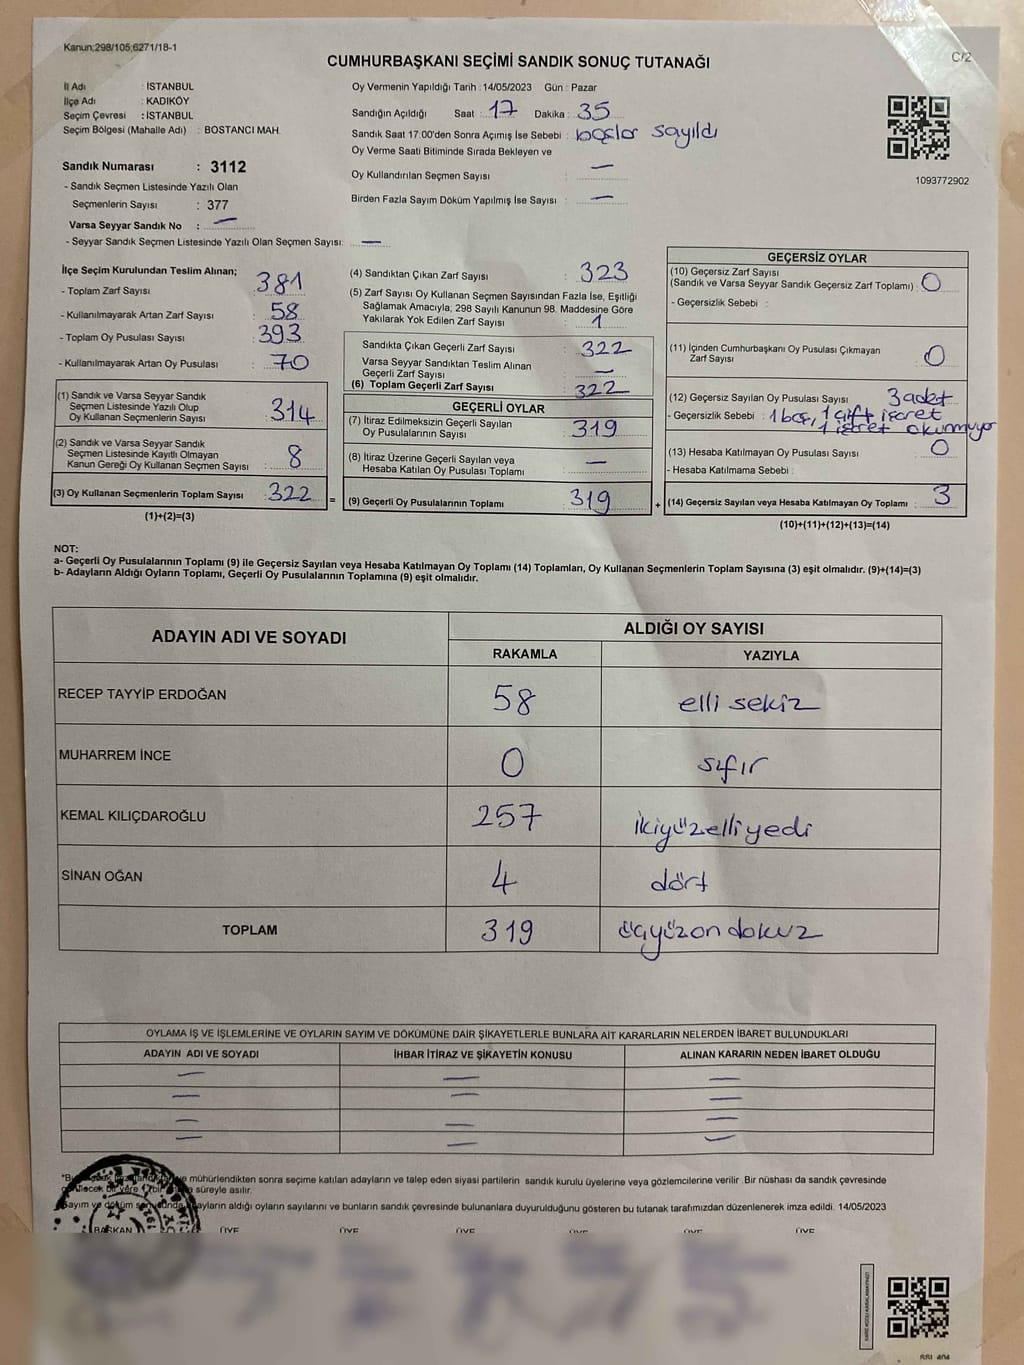 Kanun;298/105;6271/18-1
C/2
CUMHURBAŞKANI SEÇİMİ SANDIK SONUÇ TUTANAĞI
İl Adı : İSTANBUL
İlçe Adı : KADIKÖY
Seçim Çevresi : İSTANBUL
Seçim Bölgesi (Mahalle Adı) : BOSTANCI MAH.
Sandık Numarası : 3112
- Sandık Seçmen Listesinde Yazılı Olan
Seçmenlerin Sayısı : 377
Varsa Seyyar Sandık No : —
- Seyyar Sandık Seçmen Listesinde Yazılı Olan Seçmen Sayısı: —
Oy Vermenin Yapıldığı Tarih : 14/05/2023 Gün : Pazar
Sandığın Açıldığı Saat : 17 Dakika : 35
Sandık Saat 17:00'den Sonra Açımış İse Sebebi : boşlar sayıldı
Oy Verme Saati Bitiminde Sırada Bekleyen ve
Oy Kullandırılan Seçmen Sayısı : —
Birden Fazla Sayım Döküm Yapılmış İse Sayısı : —
1093772902
İlçe Seçim Kurulundan Teslim Alınan;
- Toplam Zarf Sayısı : 381
- Kullanılmayarak Artan Zarf Sayısı : 58
- Toplam Oy Pusulası Sayısı : 393
- Kullanılmayarak Artan Oy Pusulası : 70
(1) Sandık ve Varsa Seyyar Sandık
Seçmen Listesinde Yazılı Olup
Oy Kullanan Seçmenlerin Sayısı : 314
(2) Sandık ve Varsa Seyyar Sandık
Seçmen Listesinde Kayıtlı Olmayan
Kanun Gereği Oy Kullanan Seçmen Sayısı : 8
(3) Oy Kullanan Seçmenlerin Toplam Sayısı : 322
(1)+(2)=(3)
=
(4) Sandıktan Çıkan Zarf Sayısı : 323
(5) Zarf Sayısı Oy Kullanan Seçmen Sayısından Fazla İse, Eşitliği
Sağlamak Amacıyla, 298 Sayılı Kanunun 98. Maddesine Göre
Yakılarak Yok Edilen Zarf Sayısı : 1
Sandıkta Çıkan Geçerli Zarf Sayısı : 322
Varsa Seyyar Sandıktan Teslim Alınan
Geçerli Zarf Sayısı : —
(6) Toplam Geçerli Zarf Sayısı : 322
GEÇERLİ OYLAR
(7) İtiraz Edilmeksizin Geçerli Sayılan
Oy Pusulalarının Sayısı : 319
(8) İtiraz Üzerine Geçerli Sayılan veya
Hesaba Katılan Oy Pusulası Toplamı : —
(9) Geçerli Oy Pusulalarının Toplamı : 319
+
GEÇERSİZ OYLAR
(10) Geçersiz Zarf Sayısı
(Sandık ve Varsa Seyyar Sandık Geçersiz Zarf Toplamı) : 0
- Geçersizlik Sebebi :
(11) İçinden Cumhurbaşkanı Oy Pusulası Çıkmayan
Zarf Sayısı : 0
(12) Geçersiz Sayılan Oy Pusulası Sayısı : 3 adet
- Geçersizlik Sebebi : 1 boş, 1 çift işaret
1 işaret okunmuyor
(13) Hesaba Katılmayan Oy Pusulası Sayısı : 0
- Hesaba Katılmama Sebebi :
(14) Geçersiz Sayılan veya Hesaba Katılmayan Oy Toplamı : 3
(10)+(11)+(12)+(13)=(14)
NOT:
a- Geçerli Oy Pusulalarının Toplamı (9) ile Geçersiz Sayılan veya Hesaba Katılmayan Oy Toplamı (14) Toplamları, Oy Kullanan Seçmenlerin Toplam Sayısına (3) eşit olmalıdır. (9)+(14)=(3)
b- Adayların Aldığı Oyların Toplamı, Geçerli Oy Pusulalarının Toplamına (9) eşit olmalıdır.
ADAYIN ADI VE SOYADI
ALDIĞI OY SAYISI
RAKAMLA YAZIYLA
RECEP TAYYİP ERDOĞAN 58 elli sekiz
MUHARREM İNCE 0 sıfır
KEMAL KILIÇDAROĞLU 257 ikiyüzelliyedi
SİNAN OĞAN 4 dört
TOPLAM 319 üçyüzondokuz
OYLAMA İŞ VE İŞLEMLERİNE VE OYLARIN SAYIM VE DÖKÜMÜNE DAİR ŞİKAYETLERLE BUNLARA AİT KARARLARIN NELERDEN İBARET BULUNDUKLARI
ADAYIN ADI VE SOYADI İHBAR İTİRAZ VE ŞİKAYETİN KONUSU ALINAN KARARIN NEDEN İBARET OLDUĞU
— — —
— — —
— — —
— — —
mühürlendikten sonra seçime katılan adayların ve talep eden siyasi partilerin sandık kurulu üyelerine veya gözlemcilerine verilir. Bir nüshası da sandık çevresinde
süreyle asılır.
aldığı oyların sayılarını ve bunların sandık çevresinde bulunanlara duyurulduğunu gösteren bu tutanak tarafımızdan düzenlenerek imza edildi. 14/05/2023
BAŞKAN ÜYE ÜYE ÜYE ÜYE ÜYE ÜYE